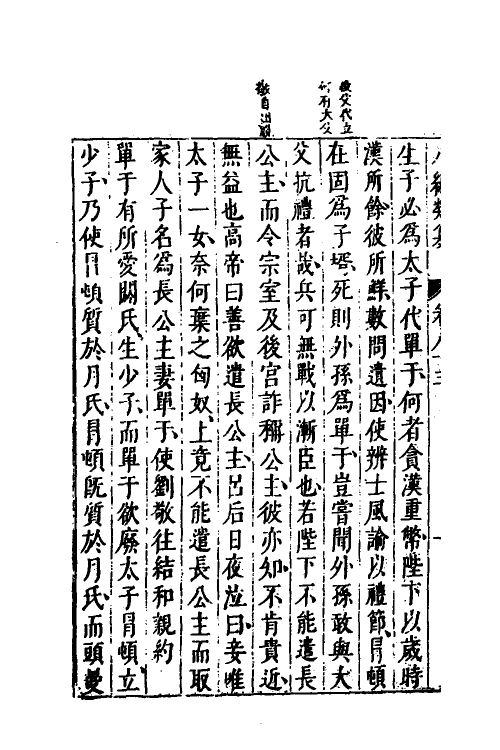 敬自出閼
冒頓代立
何有大父
生子必為太子代單于何者貪漢重幣陛下以歲時
漢所餘彼所鮮數問遺因使辨士風論以禮節冒頓
在固為子壻死則外孫為單于豈嘗聞外孫敢與大
父抗禮者哉兵可無戰以漸臣也若陛下不能遣長
公主而令宗室及後宮詐稱公主彼亦知不肯貴近
無益也高帝曰善欲遣長公主呂后日夜泣曰妾唯
太子一女奈何棄之匈奴上竟不能遣長公主而取
家人子名為長公主妻單于使劉敬往結和親約
單于有所愛閼氏生少子而單于欲廢太子冒頓立
少子乃使冒頓質於月氏冒頓旣質於月氏而頭曼